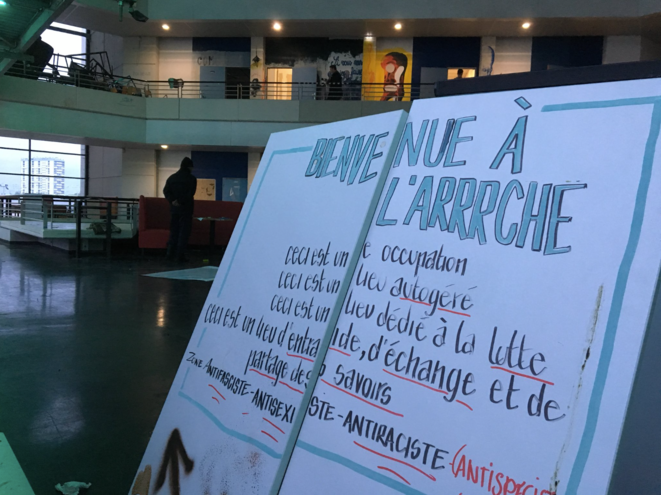 BIENVENUE À
L'ARRRCHË
ceci est une occupation
ceci est un lieu autogéré
ceci est un lieu dédié à la lutte
ceci est un lieu d'entraide, d'échange et de
partage des savoirs
ZONE ANTIFASCISTE - ANTISEXISTE - ANTIRACISTE (ANTISPÉCIS